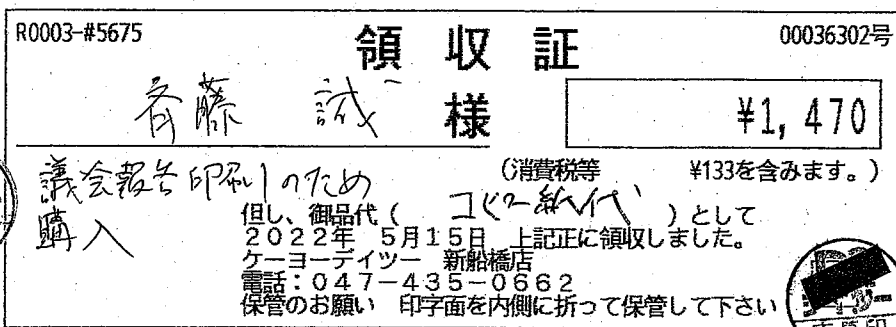 R0003-#5675
領収証
00036302号
斉藤 誠 様
¥1,470
(消費税等 ¥133を含みます。)
議会報告印刷のため
購入
但し、御品代(コピー紙代)として
2022年 5月15日 上記正に領収しました。
ケーヨーデイツー 新船橋店
電話:047-435-0662
保管のお願い 印字面を内側に折って保管して下さい